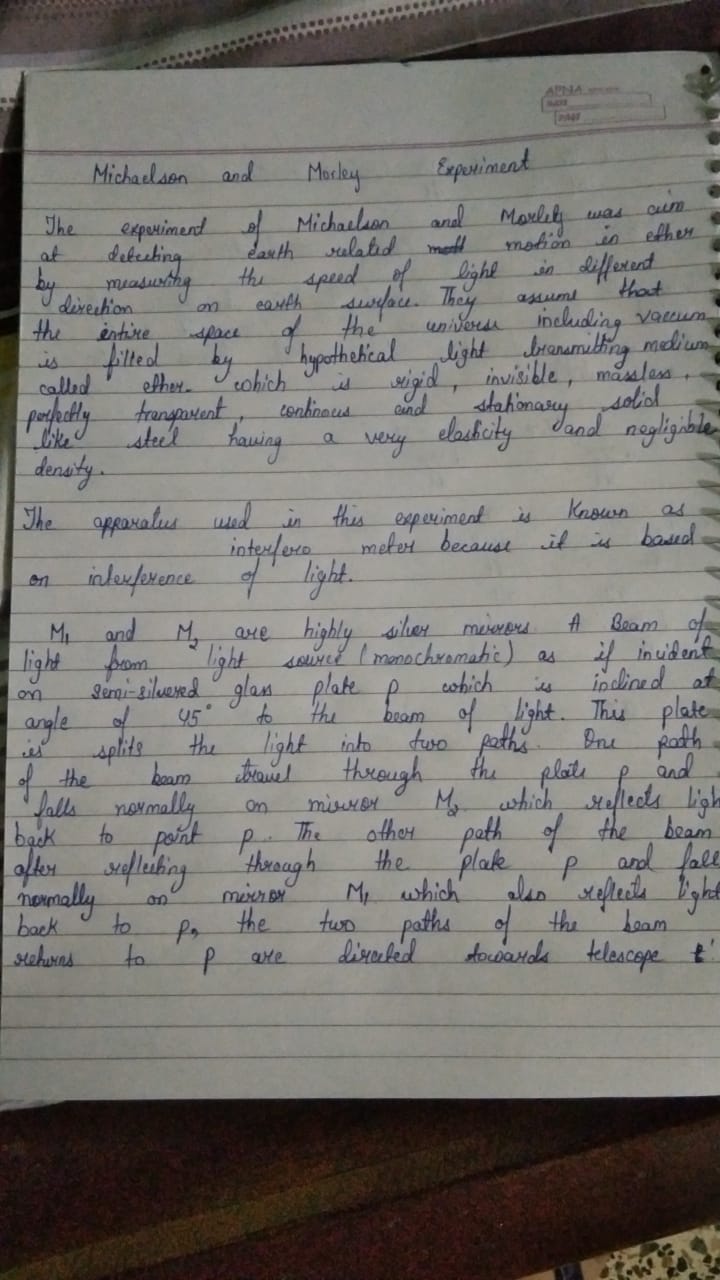 APNA
DATE
PAGE
Michaelson and Morley Experiment
The experiment of Michaelson and Morlely was aim
at detecting earth related motion in ether
by measuring the speed of light in different
direction on earth surface. They assume that
the entire space of the universe including vaccum
is filled by hypothetical light transmitting medium
called ether. which is rigid, invisible, massless,
perfectly transparent, continous and stationary solid
like steel having a very elasticity and negligible
density.
The apparatus used in this experiment is Known as
interfero meter because it is based
on interference of light.
M1 and M2 are highly silver mirrors A Beam of
light from light source (monochromatic) as if incident
on semi-silvered glass plate p which is inclined at
angle of 45° to the beam of light. This plate
is splits the light into two paths. One path
of the beam travel through the plate p and
falls normally on mirror M2 which reflects ligh
back to point p. The other path of the beam
after reflecting through the plate p and fall
normally on mirror M1 which also reflects light
back to p, the two paths of the beam
returns to p are directed towards telescope